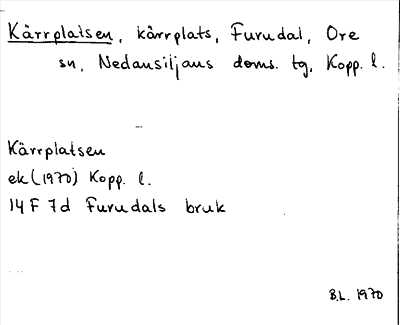 Kärrplatsen, kärrplats, Furudal, Ore
sn, Nedansiljans doms. tg, Kopp. l.
Kärrplatsen
ek (1970) Kopp. l.
14 F 7d Furudals bruk
B.L. 1970